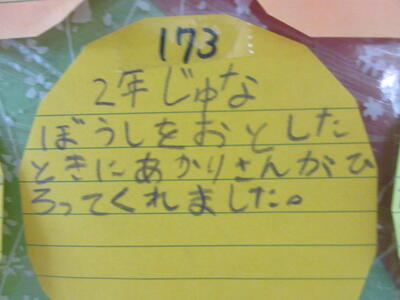 173
2年じゅな
ぼうしをおとした
ときにあかりさんがひ
ろってくれました。